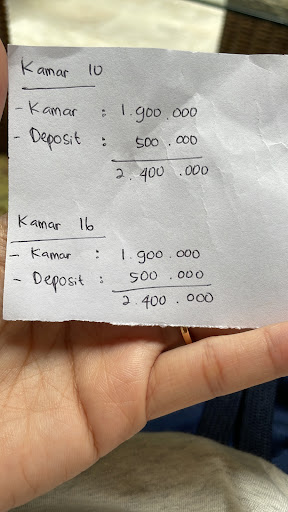 Kamar 10
- Kamar : 1.900.000
- Deposit : 500.000
2.400.000
Kamar 16
- Kamar : 1.900.000
- Deposit : 500.000
2.400.000